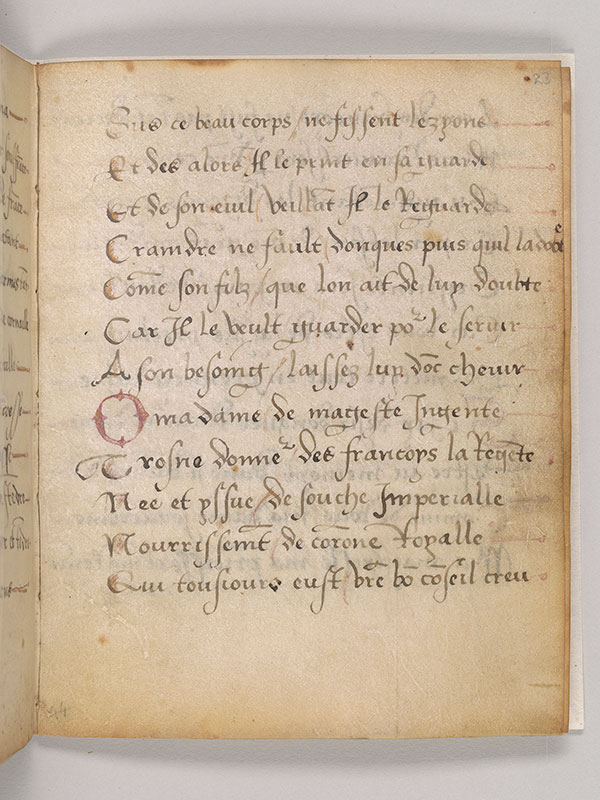 23
Sus ce beau corps / ne fissent lezyons
Et des alors Il le print en sa guarde
Et de son euil / veillāt Il le Reguarde
Craindre ne fault / donques puis quil ladoꝑte
Cōme son filz / que lon ait de luy doubte
Car Il le veult guarder poʳ le seruir
A son besoing / laissez luy dōc cheuir
O madame de mageste Ingente
Trosne donneʳ des francoys la Regēte
Neē et yssue / de souche Imperialle
Nourrissemēt de corōne Royalle
Qui tousiours eust v̄r̄e bō cōseil creu